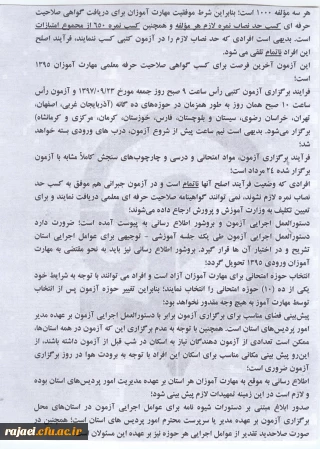 هر سه مؤلفه ۱۰۰۰ است؛ بنابراین شرط موفقیت مهارت آموزان برای دریافت گواهی صلاحیت
حرفه ای کسب حد نصاب نمره لازم هر مؤلفه و همچنین کسب نمره ۶۵۰ از مجموع امتیازات
است. بدیهی است افرادی که حد نصاب لازم را در آزمون کتبی کسب ننمایند، فرآیند اصلح
این افراد ناتمام تلقی می شود.
این آزمون آخرین فرصت برای کسب گواهی صلاحیت حرفه ای مهارت آموزان ۱۳۹۵
است؛
فرایند برگزاری آزمون کتبی رأس ساعت ۹ صبح روز جمعه مورخ ۱۳۹۷/۰۹/۲۳ و آزمون رأس
ساعت ۱۰ صبح همان روز به طور همزمان در حوزه‌های ده گانه (آذربایجان غربی، اصفهان،
تهران، خراسان رضوی، سیستان و بلوچستان، فارس، خوزستان، کرمان، مرکزی و کرمانشاه)
برگزار می‌شود. بدیهی است نیم ساعت پیش از شروع آزمون، درب های ورودی بسته خواهد
شد؛
فرآیند برگزاری آزمون، مواد امتحانی و درسی و چارچوب‌های سنجش کاملاً مشابه با آزمون
برگزار شده ۲٤ مرداد است؛
افرادی که وضعیت فرآیند اصلح آنها ناتمام است و در آزمون جبرانی هم موفق به کسب حد
نصاب نمره لازم نشوند، نمی توانند گواهینامه صلاحیت حرفه ای معلمی دریافت نمایند و برای
تعیین تکلیف به وزارت آموزش و پرورش ارجاع داده می‌شوند؛
دستورالعمل اجرایی آزمون و بروشور اطلاع رسانی به پیوست آمده است؛ ضرورت دارد
دستورالعمل اجرایی آزمون طی یک جلسه آموزشی - توجیهی برای عوامل اجرایی استان
تشریح و در اختیار آن ها قرار گیرد. بروشور اطلاع رسانی نیز باید به نحو مقتضی به مهارت
آموزان ورودی ۱۳۹۵ تحویل گردد؛
انتخاب حوزه امتحانی برای مهارت آموزان آزاد است و افراد می توانند با توجه به شرایط خود
یکی از ده (۱۰) حوزه امتحانی را انتخاب نمایند؛ بنابراین تغییر حوزه آزمون پس از انتخاب
توسط مهارت آموز به هیچ وجه مقدور نخواهد بود؛
پیش‌بینی فضای مناسب برای برگزاری آزمون برابر با دستورالعمل اجرایی آزمون بر عهده مدیر
امور پردیس‌های استان است. همچنین با توجه به عدم برگزاری این که آزمون در همه استان‌ها،
ممکن است تعدادی از آزمون دهندگان نیاز به اسکان در شب قبل از آزمون داشته باشند، از
این‌رو پیش بینی مکانی مناسب برای اسکان این افراد با توجه به برودت هوا در روز برگزاری
آزمون ضروری است؛
اطلاع رسانی به موقع به مهارت آموزان هر استان بر عهده مدیریت امور پردیس‌های استان بوده
و لازم است در این زمینه تمهیدات لازم پیش بینی شود؛
صدور ابلاغ مبتنی بر دستورات شیوه نامه برای عوامل اجرایی آزمون در استان‌های محل
برگزاری آزمون بر عهده مدیر یا سرپرست محترم امور پردیس های استان است؛ همچنین در
صورت صلاحدید تقدیر از عوامل اجرایی هر حوزه نیز بر عهده این مسئولان
rajaei.cfu.ac.ir